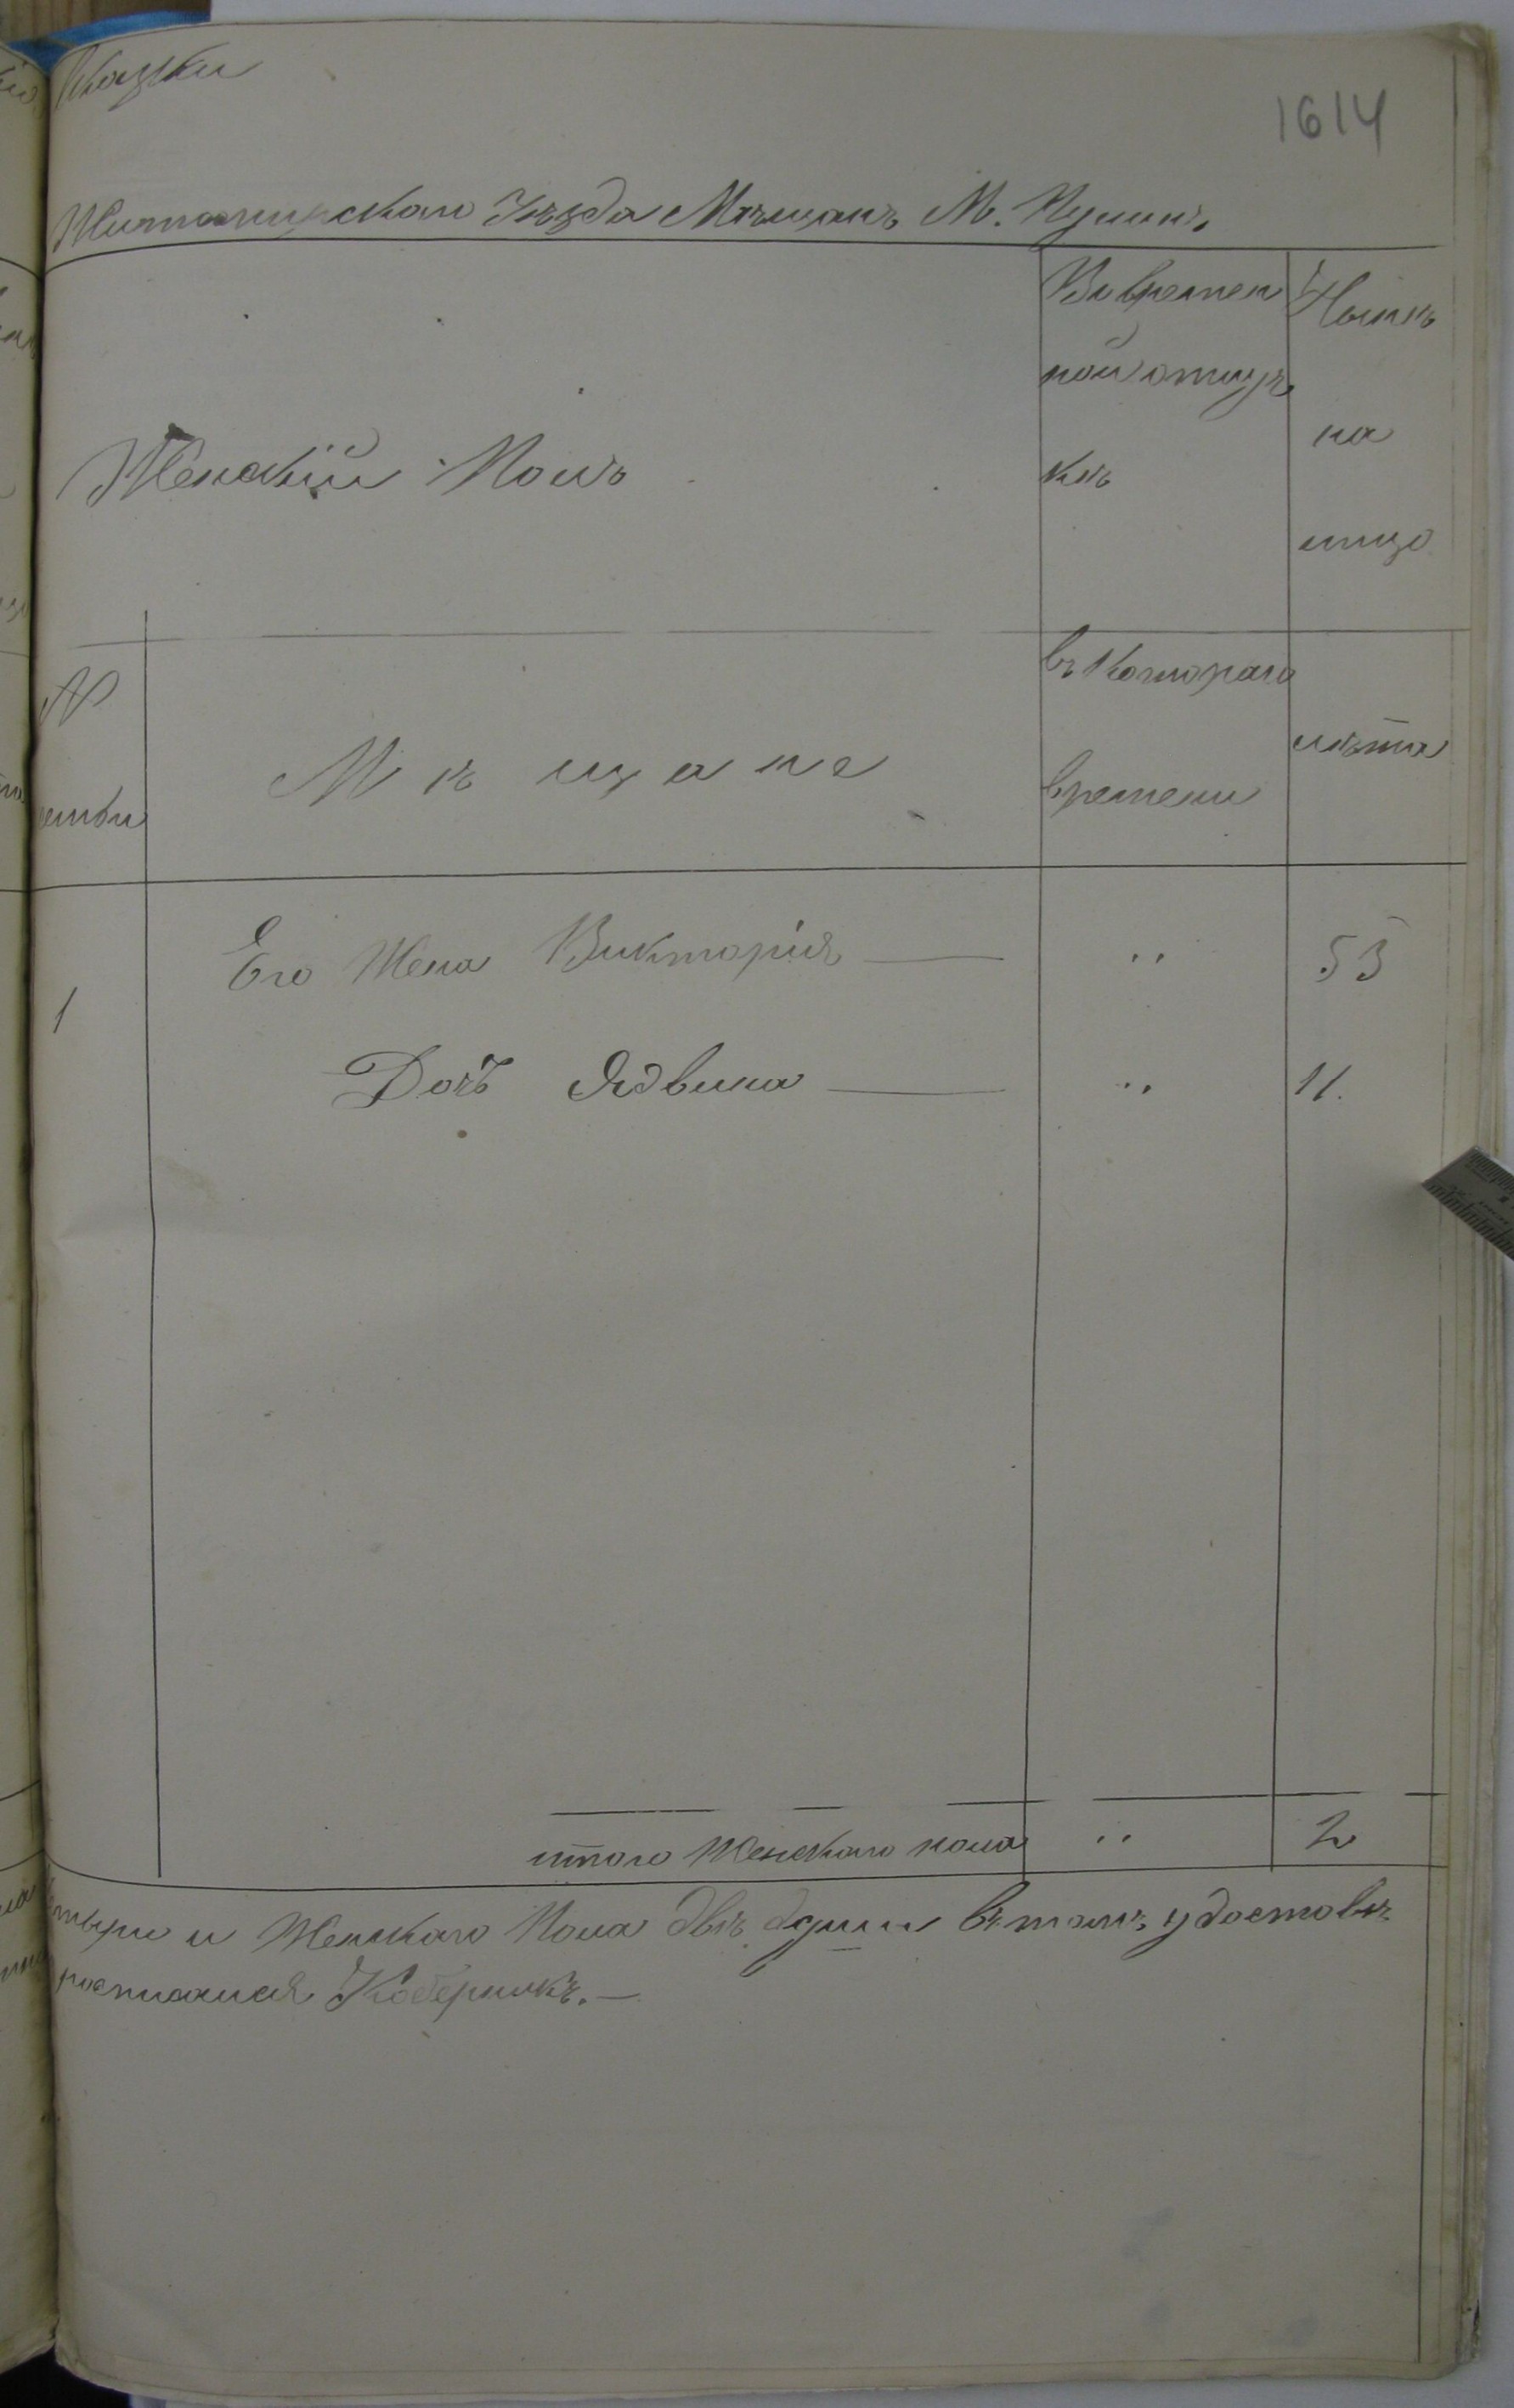 Сказки
1614
Житомирскаго Уѣзда Мѣщанъ М. Пулинъ
Женскій Полъ
Во времен
ной отлуч
кѣ
Нынѣ
на
лицо
№
семьи
Мѣщане
Съ котораго
времени
лѣта
1
Его Жена Викторія — " 53
Дочь Ядвига — " 11.
итого Женскаго пола " 2
и Женскаго Пола двѣ души въ томъ удостовѣ
Коберникъ. —